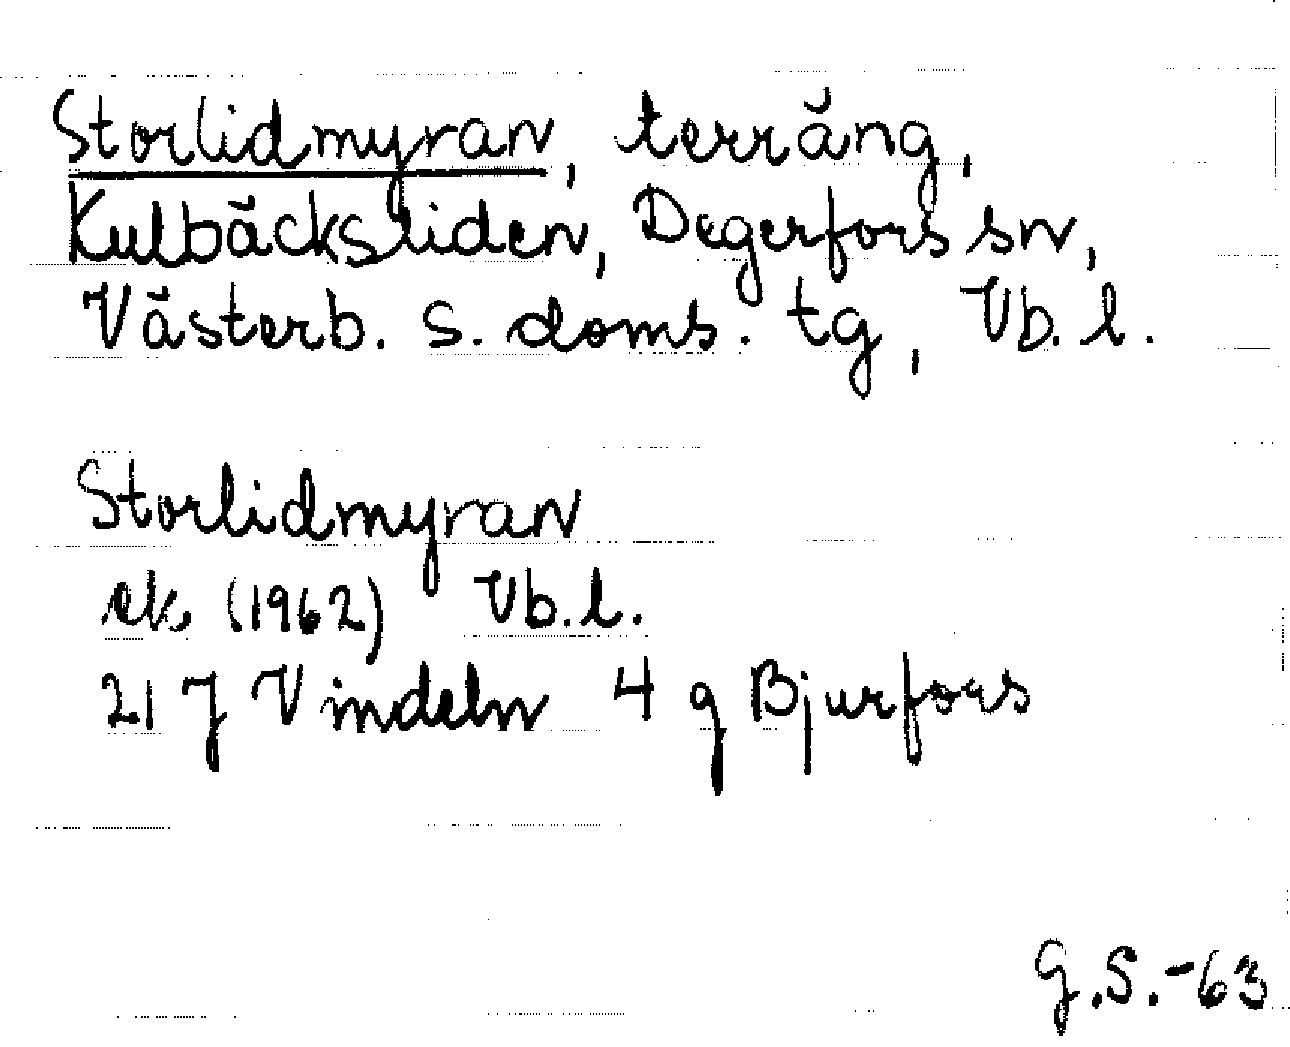 Storlidmyran, terräng,
Kulbäcksliden, Degerfors sn,
Västerb. s. doms. tg, Vb. l.
Storlidmyran
ek (1962) Vb. l.
21 J Vindeln 4 g Bjurfors
G.S.-63